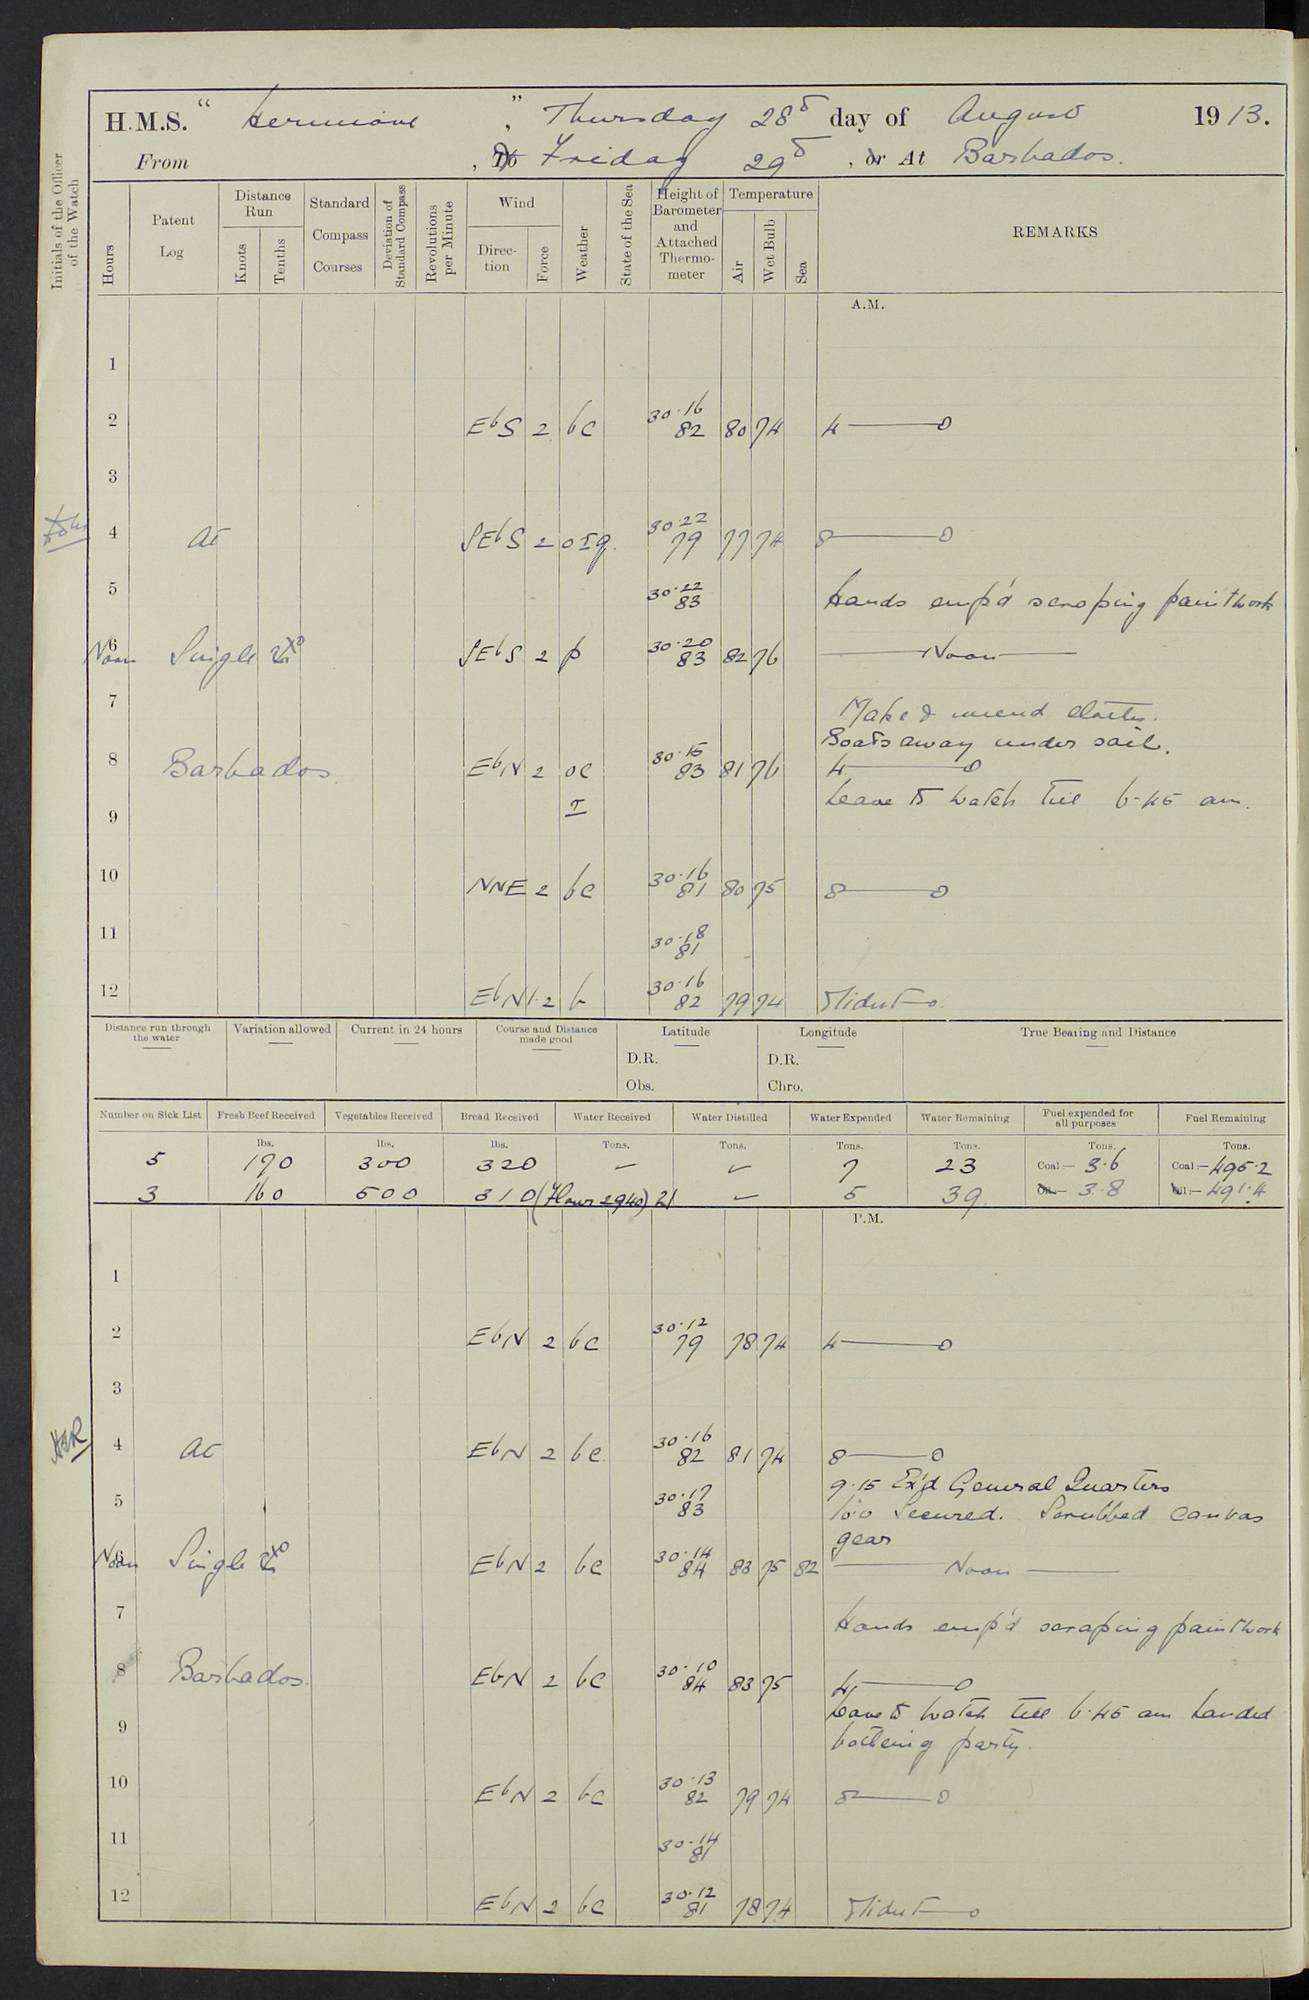 H.M.S. " Hermione ", Thursday 28th day of August 1913.
From , To Friday 29th , or At Barbados.
Initials of the Officer of the Watch
Hours Patent Log Distance Run Knots Tenths Standard Compass Courses Deviation of Standard Compass Revolutions per Minute Wind Direction Force Weather State of the Sea Height of Barometer and Attached Thermometer Temperature Air Wet Bulb Sea REMARKS
A.M.
1
2 EbS 2 bc 30.16 82 80 74 4
3
4 At SEbS 2 o r q 30.22 79 77 74 8
5 30.22 83 Hands emp'd scraping paintwork
6 Noon Single Barbados SEbS 2 p 30.20 83 82 76 Noon
7 Make & mend clothes.
Boats away under sail.
8 EbN 2 oc 30.15 83 81 76 4
9 r Leave to watch till 6.45 am.
10 NNE 2 bc 30.16 81 80 75 8
11 30.18 81
12 EbN 1.2 b 30.16 82 79 74 Midnt
Distance run through the water Variation allowed Current in 24 hours Course and Distance made good Latitude Longitude True Bearing and Distance
D.R. D.R.
Obs. Chro.
Number on Sick List Fresh Beef Received Vegetables Received Bread Received Water Received Water Distilled Water Expended Water Remaining Fuel expended for all purposes Fuel Remaining
lbs. lbs. lbs. Tons. Tons. Tons. Tons. Tons. Tons.
5 170 300 320 – – 7 23 Coal:– 3.6 Coal:– 495.2
3 160 500 310 (Flour 2940) 21 – 5 39 Oil:– 3.8 Oil:– 491.4
P.M.
1
2 EbN 2 bc 30.12 79 78 74 4
3
4 At EbN 2 bc 30.16 82 81 74 8
9.15 Ex'd General Quarters
5 30.17 83 10.0 Secured. Scrubbed canvas
gear
6 Noon Single EbN 2 bc 30.14 84 83 75 82 Noon
7 Hands emp'd scraping paintwork
8 Barbados. EbN 2 bc 30.10 84 83 75 4
Leave to watch till 6.45 am Landed
9 party.
10 EbN 2 bc 30.13 82 79 74 8
11 30.14 81
12 EbN 2 bc 30.12 81 78 74 Midnt